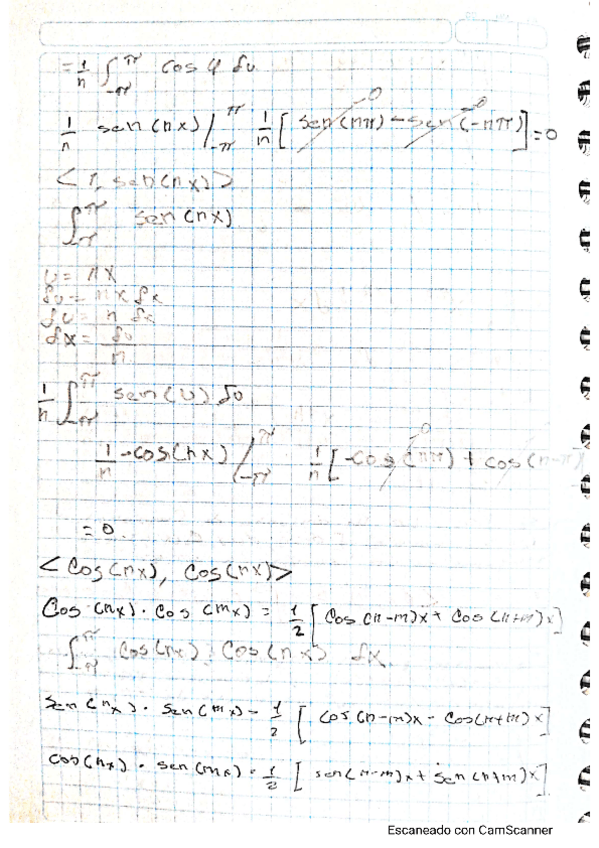 = 1/n ∫_{-π}^{π} cos u du
1/n sen(nx) /_{-π}^{π} 1/n [ sen(nπ) - sen(-nπ) ] = 0
< 1, sen(nx) >
∫_{-π}^{π} sen(nx)
u = nx
du = nx dx
du = n dx
dx = du/n
1/n ∫_{-π}^{π} sen(u) du
1/n -cos(nx) /_{-π}^{π} 1/n [ -cos(nπ) + cos(n-π)
= 0.
< Cos(nx), Cos(nx) >
Cos(nx) · Cos(mx) = 1/2 [ Cos(n-m)x + Cos(n+m)x ]
∫_{-π}^{π} Cos(nx) · Cos(nx) dx
Sen(nx) · Sen(mx) = 1/2 [ cos(n-m)x - Cos(n+m)x ]
cos(nx) · sen(mx) = 1/2 [ sen(n-m)x + Sen(n+m)x ]
Escaneado con CamScanner